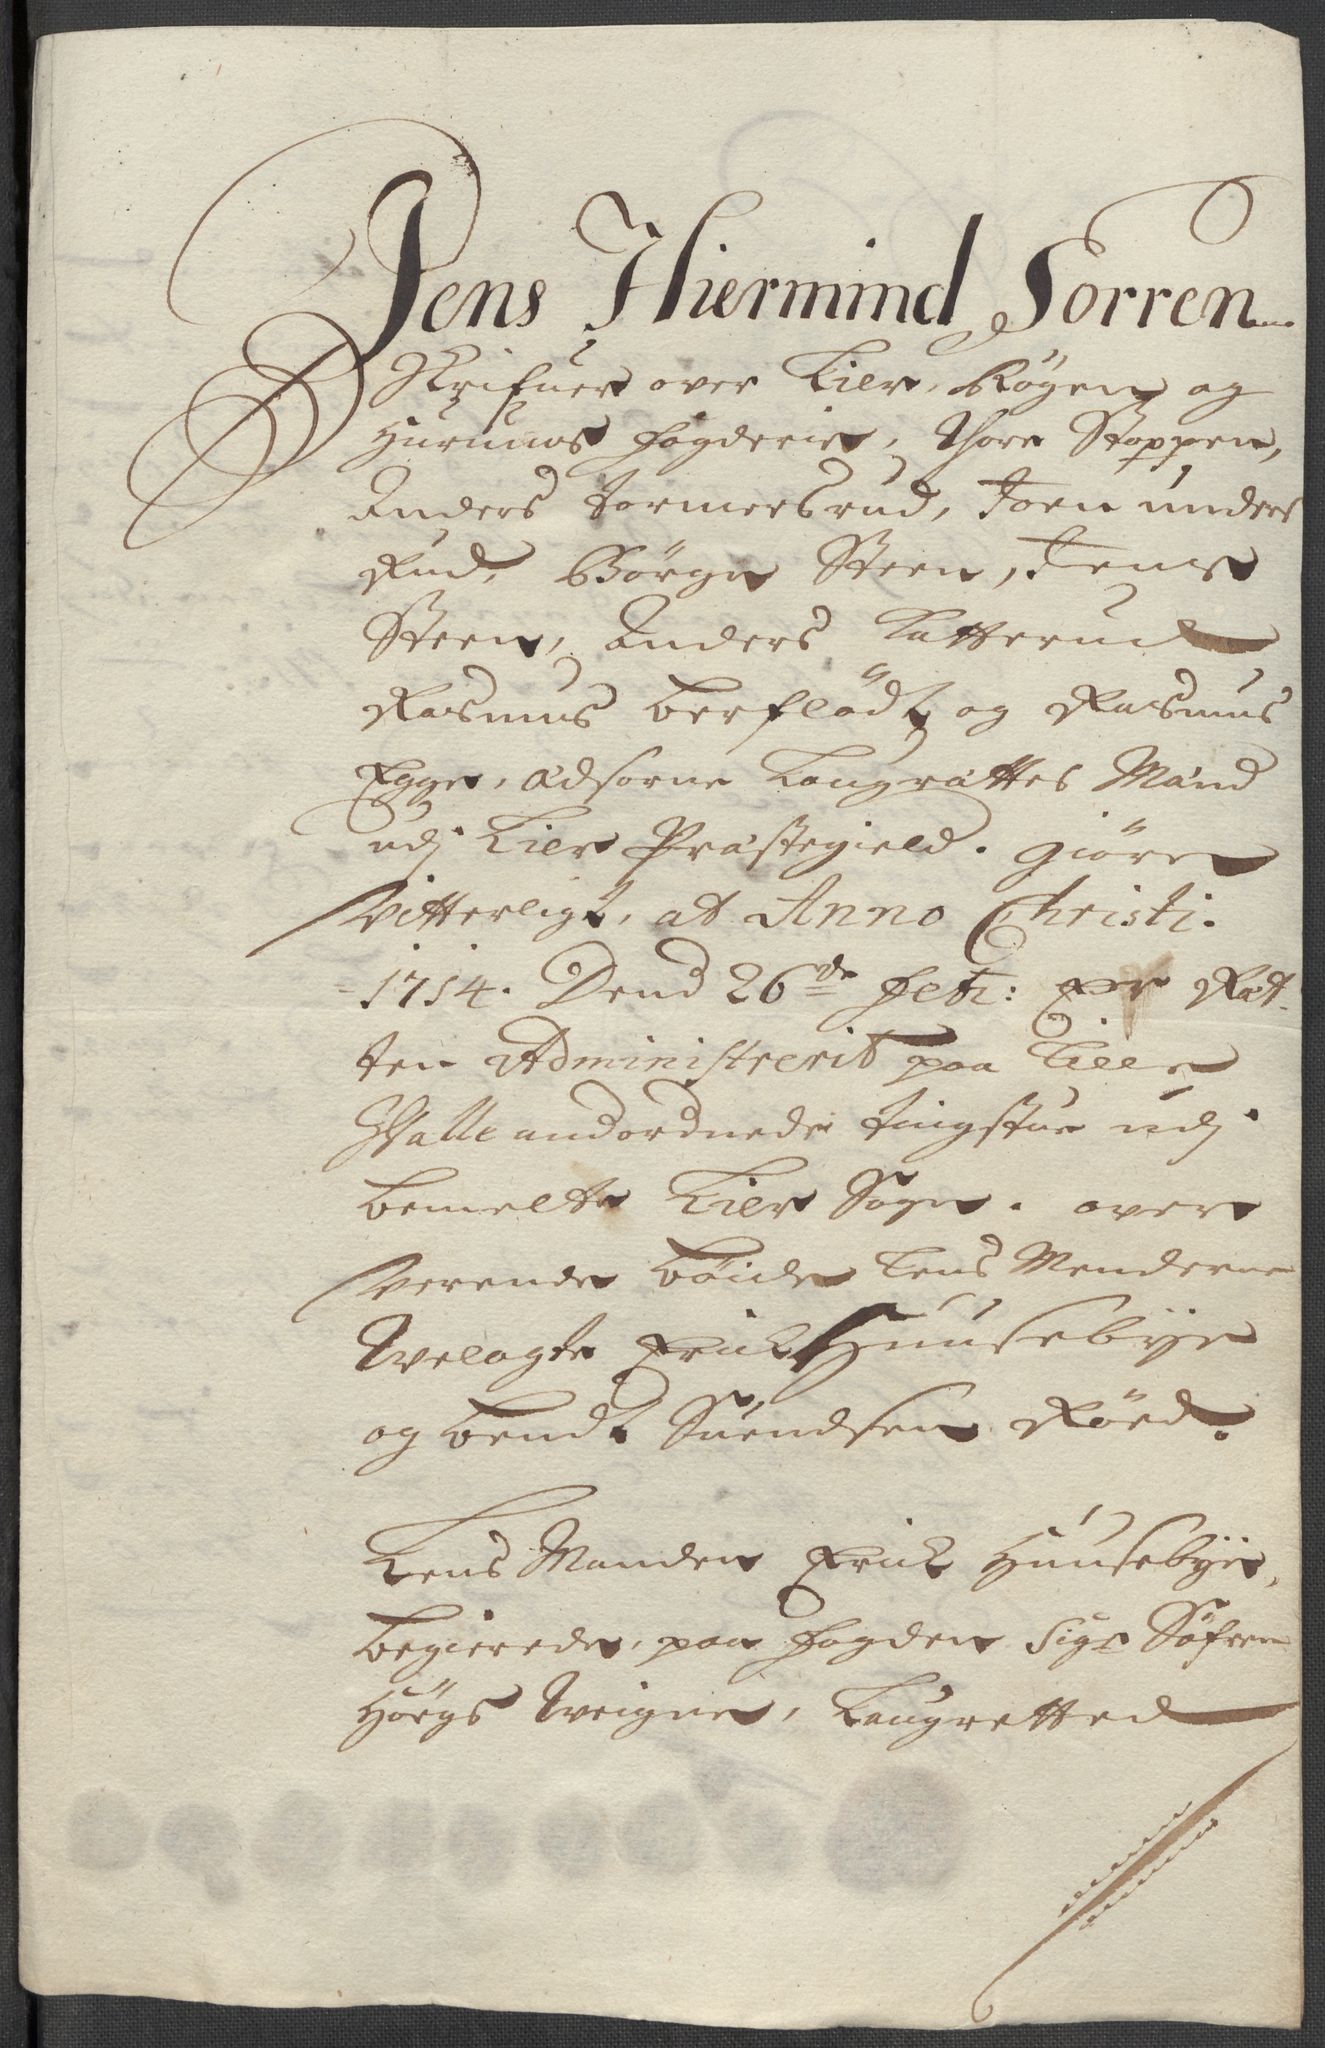 Jens Hiermind Sorren
Skrifuer over Lier, Røgen og
Hurums fogderie, Thore Stoppen,
Anders Tormersrud, Joen unders
Rud, Børge Steen, Jens
Steen, Anders Katterud
Rasmus berflødt og Rasmus
Egge, Edsorne Laugrættes Mænd
udj Lier Præstegield. giøre
Vitterligt, at Anno Christi.
1714. Dend 26de febr: er Ræt-
ten Administrerit paa Lille
Walle andordnede tingstue udj
bemelte Lier Sogn. over
værende bøide Lens Menderne
Welagte Erick Huusebye
og bendt Suendsen Røed.
Lens Manden Erick Huusebye,
begierede, paa fogden Sigr Søfren
Høegs Weigne, Laugretted